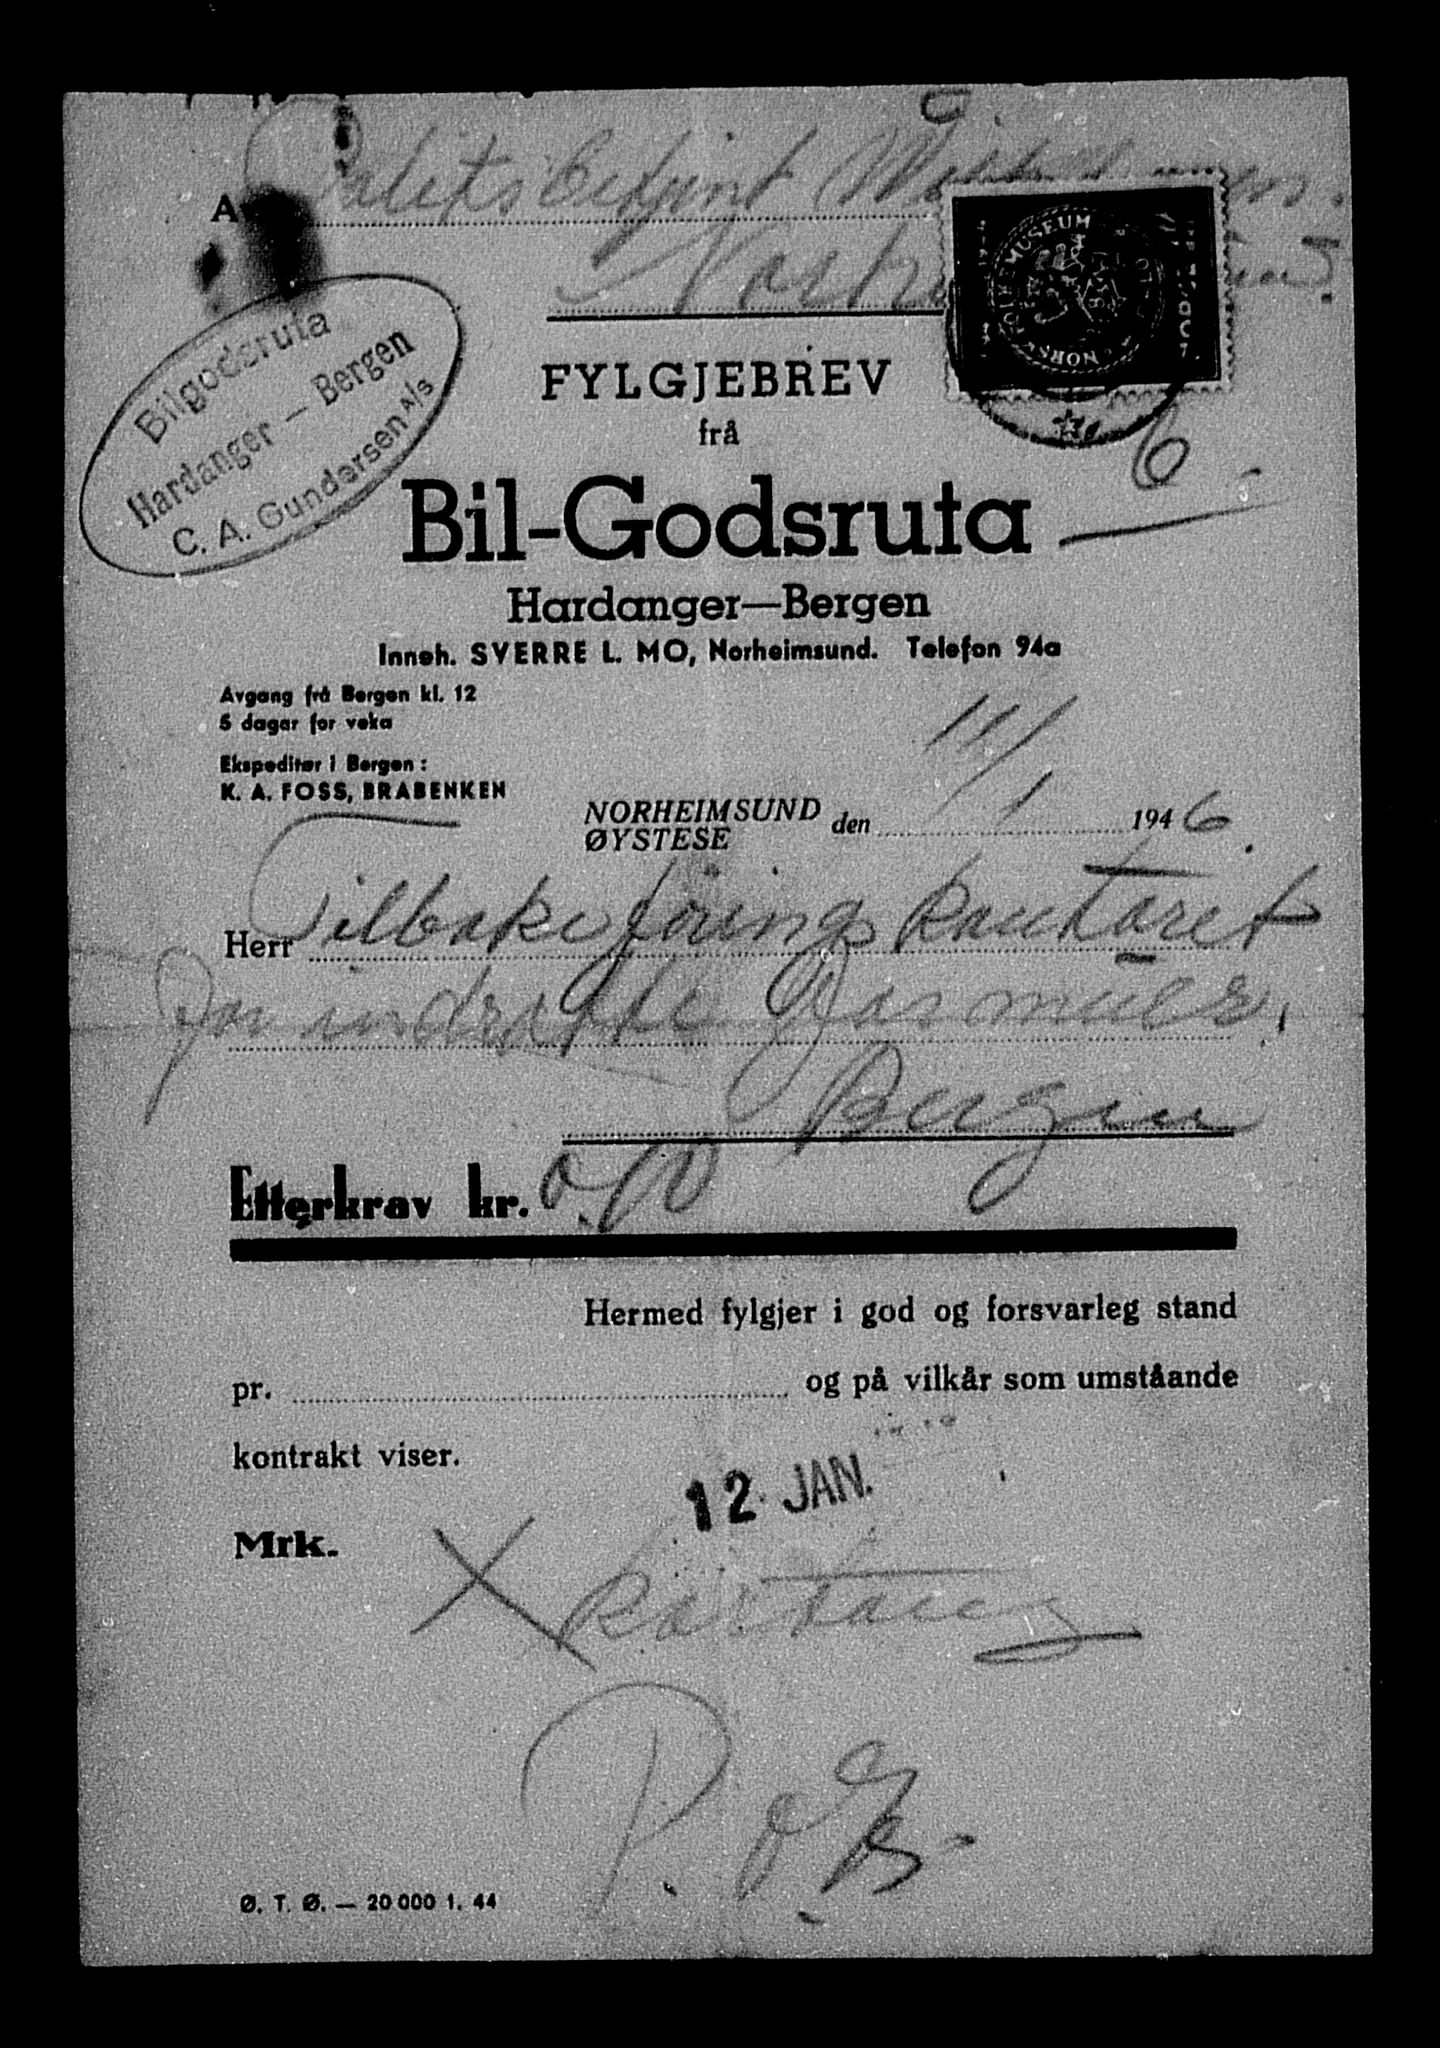 A
NORSK FOLKEMUSEUM
Bilgodsruta
Hardanger — Bergen
C. A. Gundersen A/s
FYLGJEBREV
frå
6
Bil-Godsruta
Hardanger—Bergen
Inneh. SVERRE L. MO, Norheimsund. Telefon 94a
Avgang frå Bergen kl. 12
5 dagar for veka
Ekspeditør i Bergen:
K. A. FOSS, BRABENKEN
NORHEIMSUND
ØYSTESE
den 11/1 1946.
Herr Tilbakeføringskontoret
for inndratte
Bergen
Etterkrav kr.
Hermed fylgjer i god og forsvarleg stand
pr. og på vilkår som umståande
kontrakt viser.
12. JAN.
Mrk.
X kartong
P.
Ø. T. Ø. — 20 000 1. 44